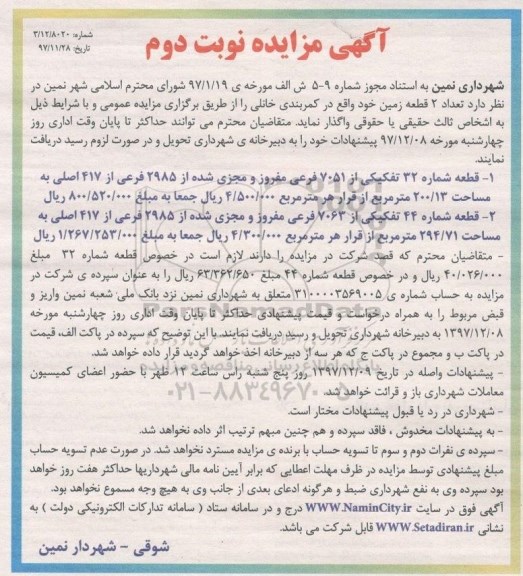 آگهی مزایده نوبت دوم
شماره: ۳/۱۲/۸۰۲۰
تاریخ: ۹۷/۱۱/۲۸
شهرداری نمین به استناد مجوز شماره ۹-۵ ش الف مورخه ی ۹۷/۱/۱۹ شورای محترم اسلامی شهر نمین در
نظر دارد تعداد ۲ قطعه زمین خود واقع در کمربندی خانلی را از طریق برگزاری مزایده عمومی و با شرایط ذیل
به اشخاص ثالث حقیقی یا حقوقی واگذار نماید. متقاضیان محترم می توانند حداکثر تا پایان وقت اداری روز
چهارشنبه مورخه ۹۷/۱۲/۰۸ پیشنهادات خود را به دبیرخانه ی شهرداری تحویل و در صورت لزوم رسید دریافت
نمایند.
۱- قطعه شماره ۳۲ تفکیکی از ۷۰۵۱ فرعی مفروز و مجزی شده از ۲۹۸۵ فرعی از ۴۱۷ اصلی به
مساحت ۲۰۰/۱۳ مترمربع از قرار هر مترمربع ۴/۵۰۰/۰۰۰ ریال جمعا به مبلغ ۸۰۰/۵۲۰/۰۰۰ ریال
۲- قطعه شماره ۴۴ تفکیکی از ۷۰۶۳ فرعی مفروز و مجزی شده از ۲۹۸۵ فرعی از ۴۱۷ اصلی به
مساحت ۲۹۴/۷۱ مترمربع از قرار هر مترمربع ۴/۳۰۰/۰۰۰ ریال جمعا به مبلغ ۱/۲۶۷/۲۵۳/۰۰۰ ریال
- متقاضیان محترم که قصد شرکت در مزایده را دارند لازم است در خصوص قطعه شماره ۳۲ مبلغ
۴۰/۰۲۶/۰۰۰ ریال و در خصوص قطعه شماره ۴۴ مبلغ ۶۳/۳۶۲/۶۵۰ ریال را به عنوان سپرده ی شرکت در
مزایده به حساب شماره ی ۳۱۰۰۰۰۳۵۶۹۰۰۵ متعلق به شهرداری نمین نزد بانک ملی شعبه نمین واریز و
قبض مربوط را به همراه درخواست و قیمت پیشنهادی حداکثر تا پایان وقت اداری روز چهارشنبه مورخه
۱۳۹۷/۱۲/۰۸ به دبیرخانه شهرداری تحویل و رسید دریافت نمایند. با این توضیح که سپرده در پاکت الف، قیمت
در پاکت ب و مجموع در پاکت ج که هر سه از دبیرخانه اخذ خواهد گردید قرار داده خواهد شد.
- پیشنهادات واصله در تاریخ ۱۳۹۷/۱۲/۰۹ روز پنج شنبه راس ساعت ۱۲ ظهر با حضور اعضای کمیسیون
معاملات شهرداری باز و قرائت خواهد شد.
- شهرداری در رد یا قبول پیشنهادات مختار است.
- به پیشنهادات مخدوش ، فاقد سپرده و هم چنین مبهم ترتیب اثر داده نخواهد شد.
- سپرده ی نفرات دوم و سوم تا تسویه حساب با برنده ی مزایده مسترد نخواهد شد. در صورت عدم تسویه حساب
مبلغ پیشنهادی توسط مزایده در ظرف مهلت اعطایی که برابر آیین نامه مالی شهرداریها حداکثر هفت روز خواهد
بود سپرده وی به نفع شهرداری ضبط و هرگونه ادعای بعدی از جانب وی به هیچ وجه مسموع نخواهد بود.
آگهی فوق در سایت WWW.NaminCity.ir درج و در سامانه ستاد ( سامانه تدارکات الکترونیکی دولت ) به
نشانی WWW.Setadiran.ir قابل شرکت می باشد.
شوقی - شهردار نمین
۰۲۱-۸۸۳۴۹۶۷۰-۵